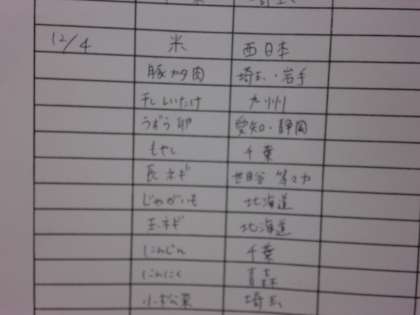 12/4 米 西日本
豚カタ肉 埼玉・岩手
干しいたけ 九州
うずら卵 愛知・静岡
もやし 千葉
長ネギ 世田谷
じゃがいも 北海道
玉ネギ 北海道
にんじん 千葉
にんにく 青森
小松菜 埼玉